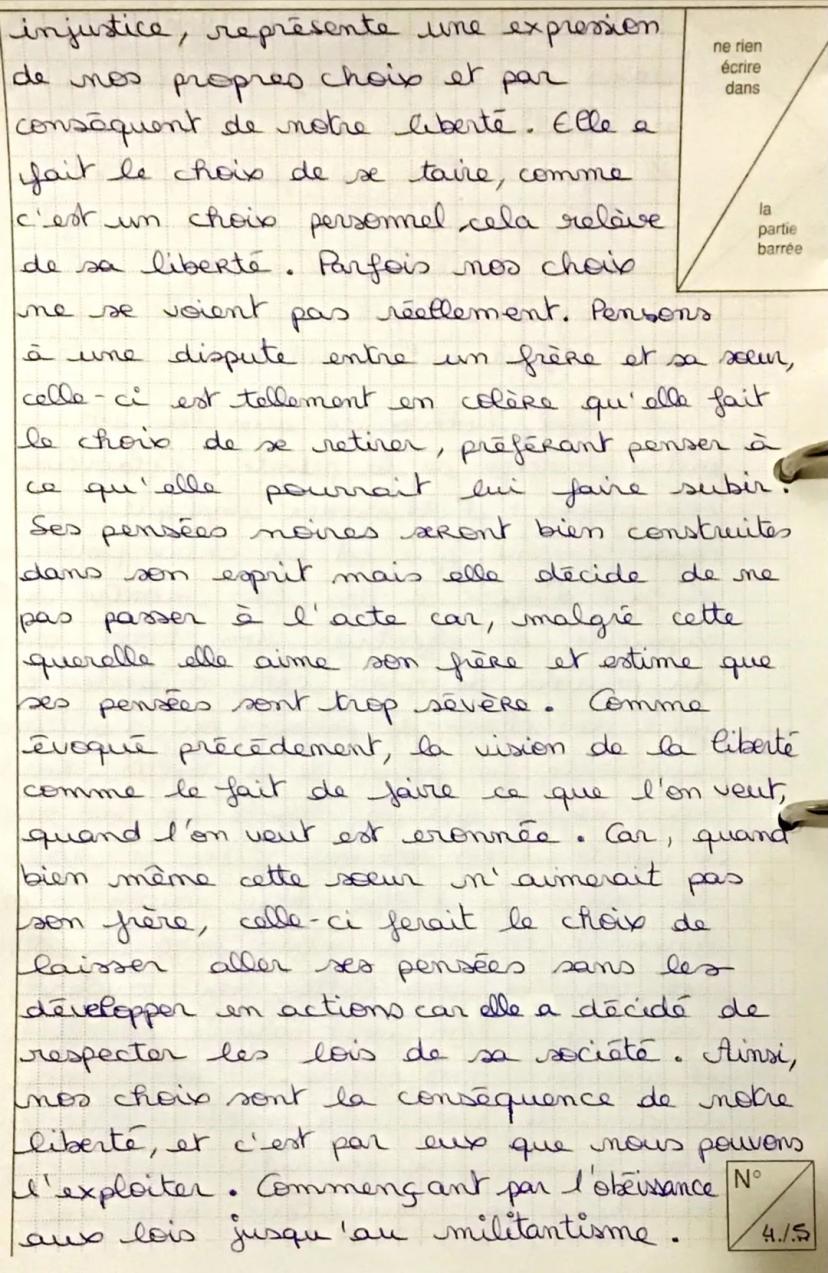 injustice, représente une expression
de nos propres choix et par
conséquent de notre liberté. Elle a
fait le choix de se taire, comme
c'est un choix personnel, cela relève
de sa liberté. Parfois nos choix
ne se voient pas réellement. Pensons
à une dispute entre un frère et sa sœur,
celle-ci est tellement en colère qu'elle fait
le choix de se retirer, préférant penser à
ce qu'elle pourrait lui faire subir.
Ses pensées noires seront bien construites
dans son esprit mais elle décide de ne
pas passer à l'acte car, malgré cette
querelle elle aime son frère et estime que
ses pensées sont trop sévère. Comme
évoqué précédement, la vision de la liberté
comme le fait de faire ce que l'on veut,
quand l'on veut est eronnée. Car, quand
bien même cette sœur n'aimerait pas
son frère, celle-ci ferait le choix de
laisser aller ses pensées sans les
développer en actions car elle a décidé de
respecter les lois de sa société. Ainsi,
nos choix sont la conséquence de notre
liberté, et c'est par eux que nous pouvons
l'exploiter. Commençant par l'obéissance
aux lois jusqu'au militantisme.
ne rien
écrire
dans
la
partie
barrée
N°
4./5